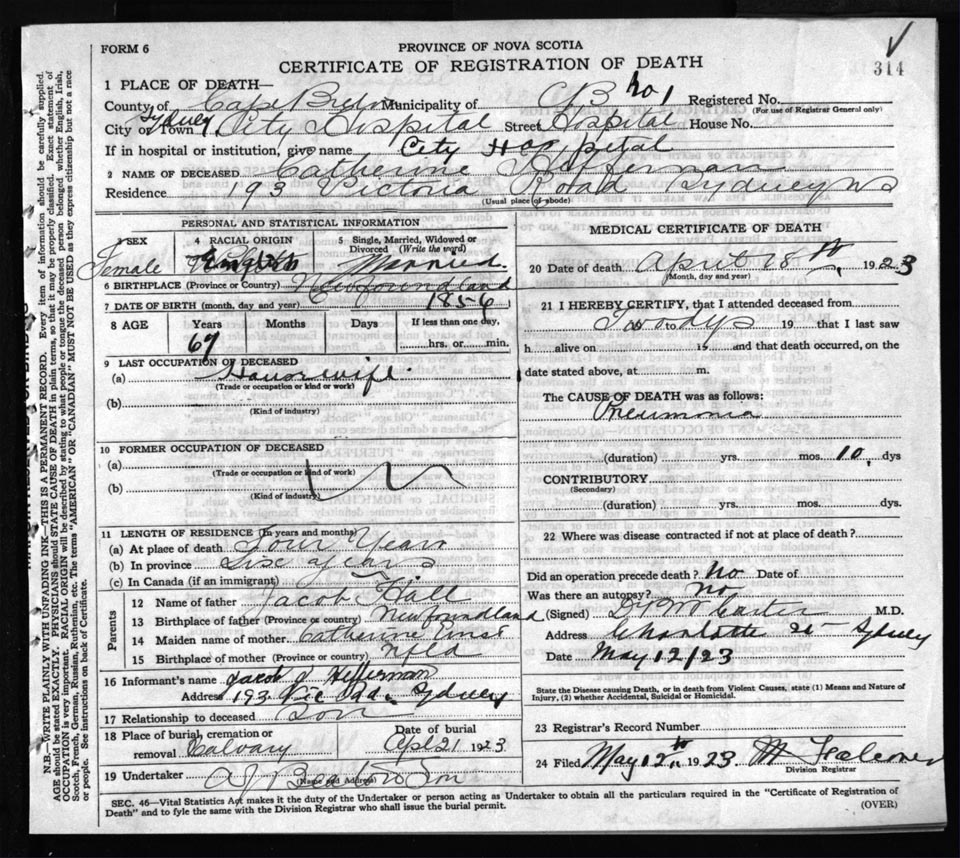 FORM 6
PROVINCE OF NOVA SCOTIA
CERTIFICATE OF REGISTRATION OF DEATH
314
1 PLACE OF DEATH—
County of Cape Breton Municipality of CB No 1 Registered No.
(For use of Registrar General only)
City or Town Sydney City Hospital Street Hospital House No.
If in hospital or institution, give name City Hospital
2 NAME OF DECEASED Catherine Hefferman
Residence 193 Victoria Road Sydney NS
(Usual place of abode)
PERSONAL AND STATISTICAL INFORMATION
3 SEX
Female
4 RACIAL ORIGIN
English
5 Single, Married, Widowed or Divorced (Write the word)
Married.
6 BIRTHPLACE (Province or Country) Newfoundland
7 DATE OF BIRTH (month, day and year) 1856
8 AGE
Years Months Days If less than one day,
67 hrs. or min.
9 LAST OCCUPATION OF DECEASED
(a) Housewife.
(Trade or occupation or kind of work)
(b)
(Kind of industry)
10 FORMER OCCUPATION OF DECEASED
(a)
(Trade or occupation or kind of work)
(b)
(Kind of industry)
11 LENGTH OF RESIDENCE (In years and months)
(a) At place of death Four Years
(b) In province Six years
(c) In Canada (if an immigrant)
Parents
12 Name of father Jacob Hall
13 Birthplace of father (Province or country) Newfoundland
14 Maiden name of mother Catherine
15 Birthplace of mother (Province or country) Nfld
16 Informant's name Jacob J Hefferman
Address 193 Vic Rd. Sydney
17 Relationship to deceased Son
18 Place of burial, cremation or removal Calvary
Date of burial
Apl 21 1923
19 Undertaker A J Beaton & Son
(Name and Address)
MEDICAL CERTIFICATE OF DEATH
20 Date of death April 18th, 1923
(Month, day and year)
21 I HEREBY CERTIFY, that I attended deceased from
to 19 that I last saw
h alive on 19 and that death occurred, on the
date stated above, at m.
The CAUSE OF DEATH was as follows:
Pneumonia
(duration) yrs. mos. 10, dys
CONTRIBUTORY
(Secondary)
(duration) yrs. mos. dys.
22 Where was disease contracted if not at place of death?
Did an operation precede death? No Date of
Was there an autopsy? No
(Signed) M.D.
Address Charlotte St Sydney
Date May 12/23
State the Disease causing Death, or in death from Violent Causes, state (1) Means and Nature of Injury, (2) whether Accidental, Suicidal or Homicidal.
23 Registrar's Record Number
24 Filed May 12th 1923
Division Registrar
SEC. 46—Vital Statistics Act makes it the duty of the Undertaker or person acting as Undertaker to obtain all the particulars required in the "Certificate of Registration of
Death" and to fyle the same with the Division Registrar who shall issue the burial permit.
(OVER)
N.B.—WRITE PLAINLY WITH UNFADING INK—THIS IS A PERMANENT RECORD. Every item of information should be carefully supplied.
AGE should be stated EXACTLY. PHYSICIANS should STATE CAUSE OF DEATH in plain terms, so that it may be properly classified. Exact statement of
OCCUPATION is very important. RACIAL ORIGIN will be described by stating to what people or tongue the deceased person belonged, whether English, Irish,
Scotch, French, German, Russian, Ruthenian, etc. The terms "AMERICAN" OR "CANADIAN" MUST NOT BE USED as they express citizenship but not a race
or people. See instructions on back of Certificate.